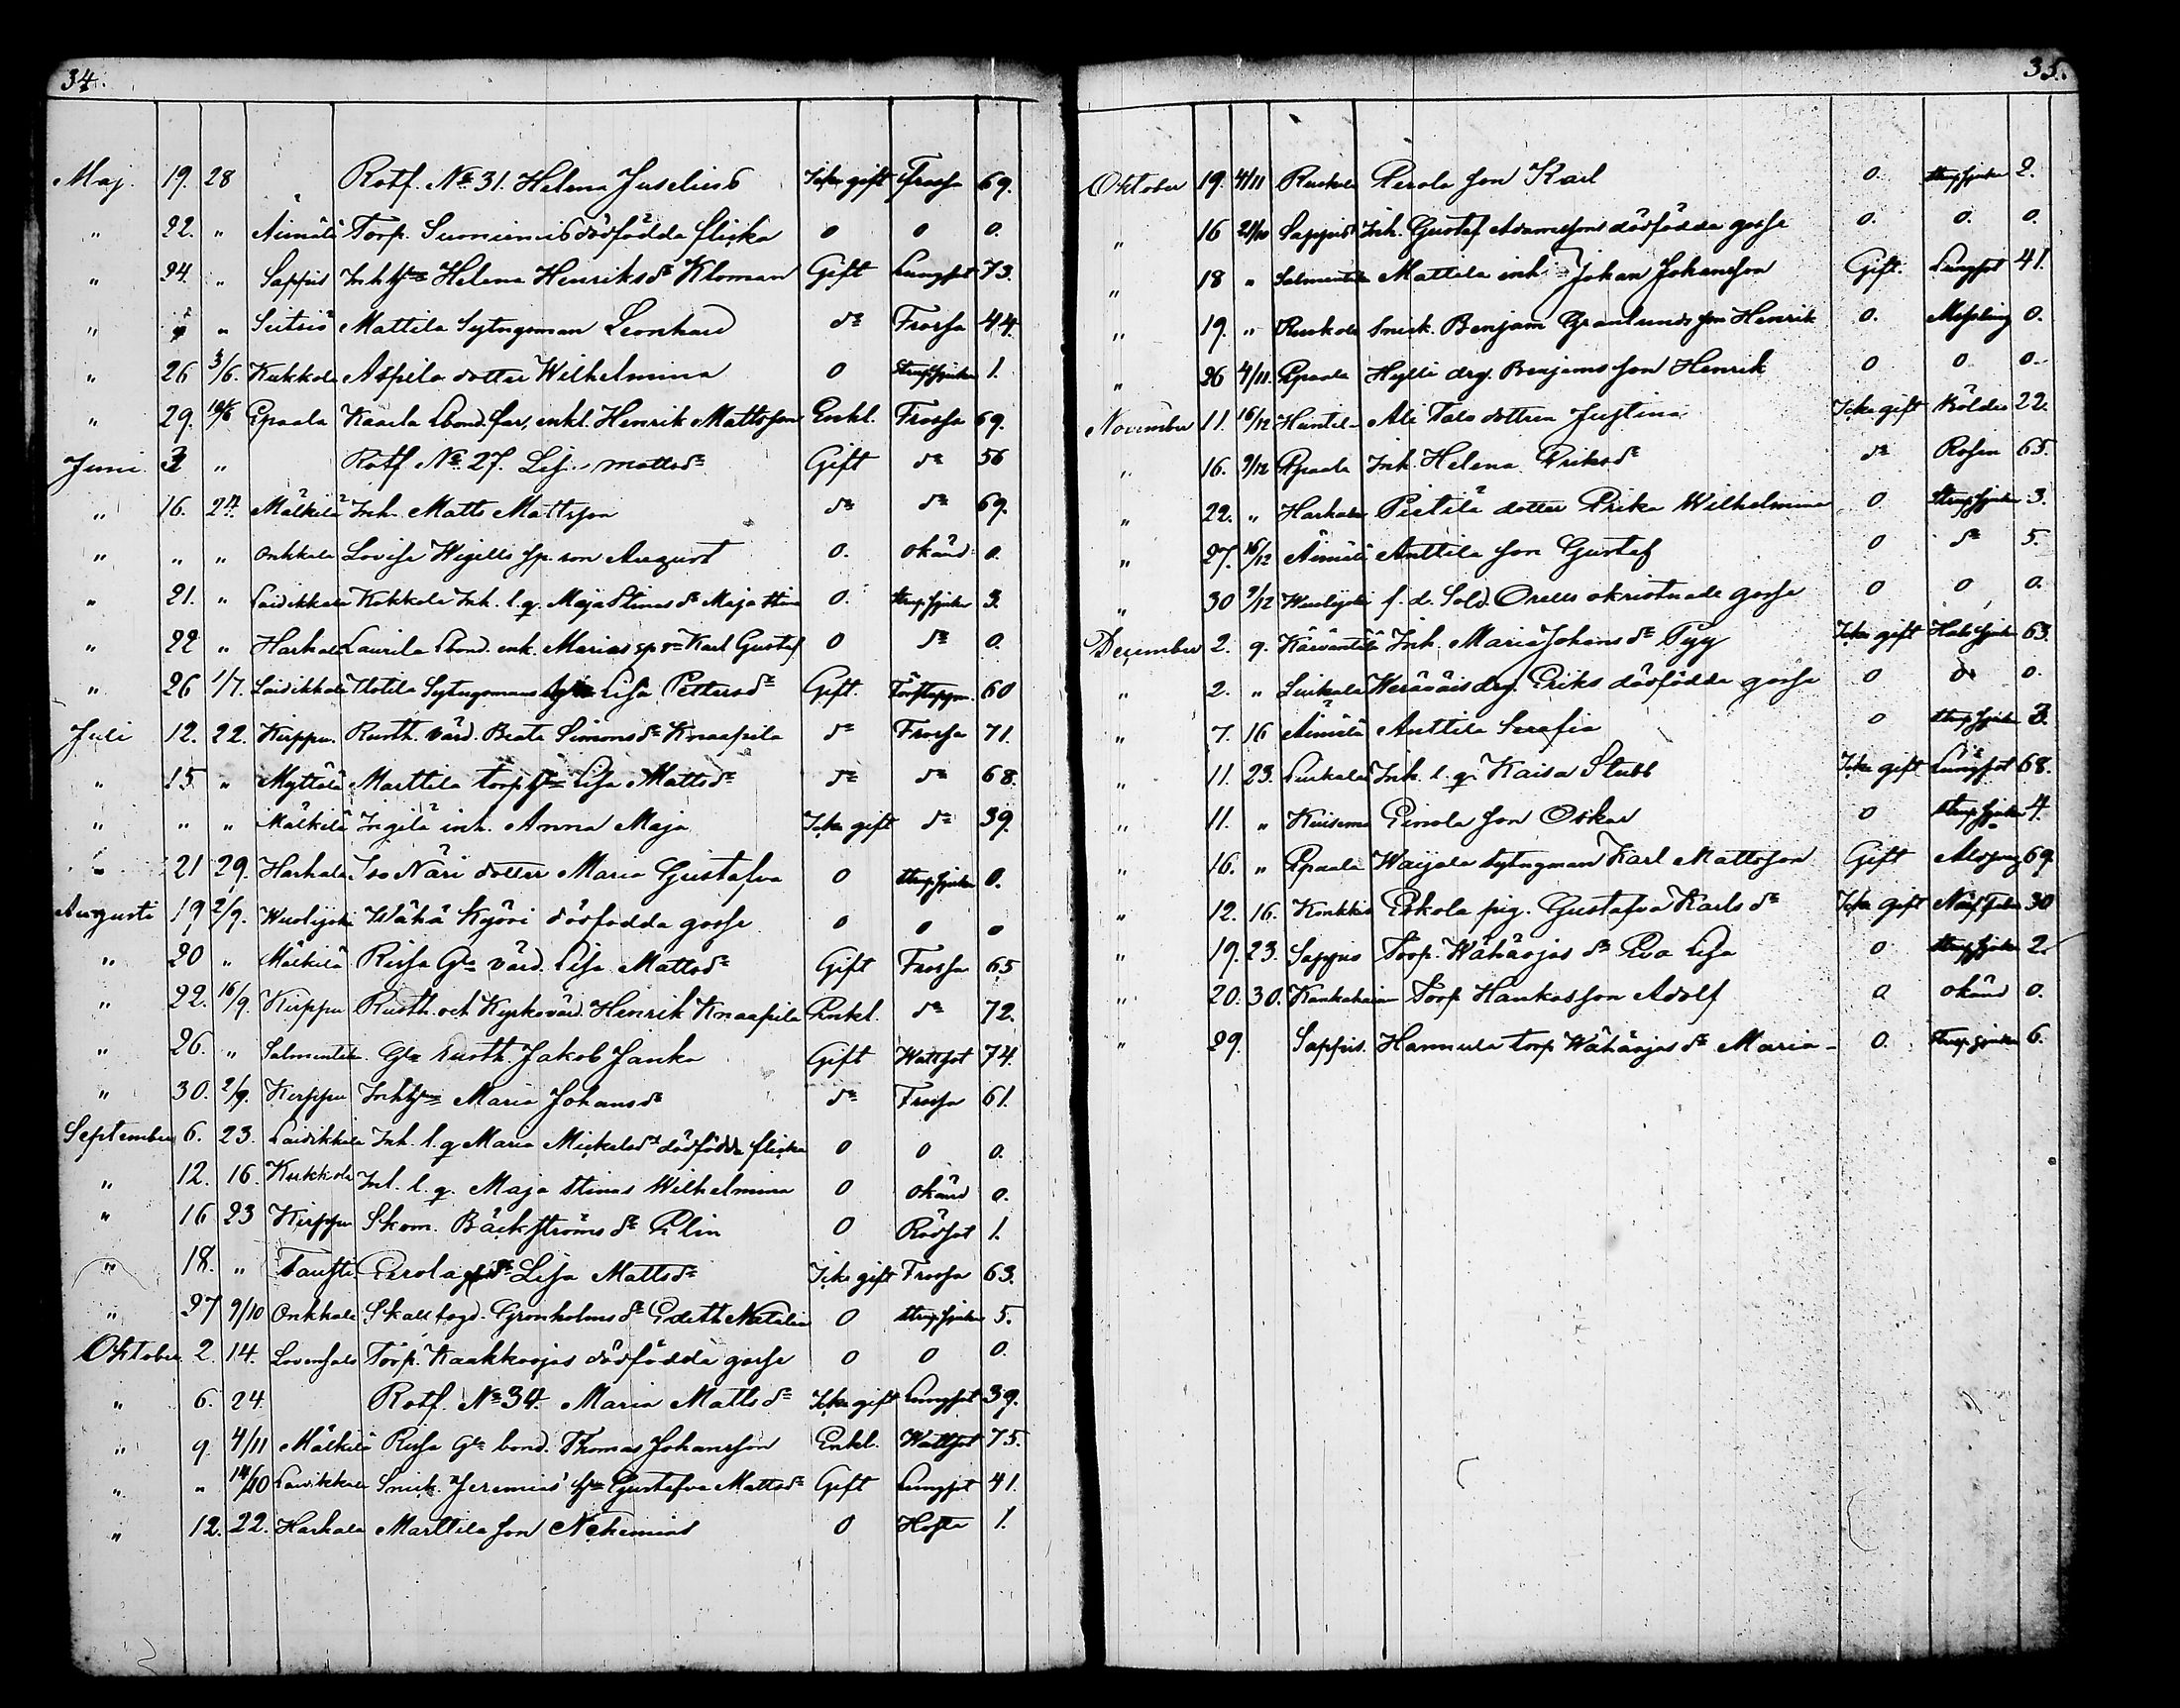 34.
Maj. 19. 28 " Rotf. No 31. Helena Juselius Icke gift Frossa 69.
" 22. " Äimälä Torp. Suomimis dödfödda flicka 0 0 0.
" 24. " Sappis Inhhu Helena Henriksdr Kloman Gift Lungsot 73.
" " Seitsiö Mattila Sytngsman Leonhard do Frossa 44.
" 26 3/6. Kukkola Aspila dotter Wilhelmina 0 Strupsjuka 1.
" 29. Epaala Kaarla Lbond. far, enkl. Henrik Mattsson Enkl. Frossa 69.
Juni 3 " Rotf No 27. Lisa mattsdr Gift do 56
" 16. 24. Mälkilä Inh. Matts Mattsson do do 69.
" " " Onkkala Lovisa Wigells sp. son August 0. okänd 0.
" 21. " Laidikkala Kokkola Inh. l. q. Maja Stinas dr Maja Stina 0. Strupsjuka 3.
" 22 " Harhala Laurila Lbond. enk. Marias sp. so Karl Gustaf 0 do 0.
" 26 1/7. Laidikkala Tlotila Sytngsmans Lisa Pettersdr Gift. 60
Juli 12. 22. Kirppu. Rusth. värd. Beata Simonsdr Knaapila do Frossa 71.
" 15 " Myttälä Marttila torp hu Lisa Mattsdr do do 68.
" " " Mälkilä Ingilä inh. Anna Maja Icke gift do 39.
" 21 29. Harhala Iso Näri dotter Maria Gustafva 0 Strupsjuka 0.
Augusti 19 2/9. Wuolijoki Wähä Kyöri dödfodda gosse 0 0 0
" 20 " Mälkilä Rissa Gla värd. Lisa Mattsdr Gift Frossa 65
" 22. 16/9. Kirppu Rusth. och Kyrkovärd. Henrik Knaapila Enkl. do 72.
" 26. " Salmentaka Gla rusth. Jakob Janka Gift Wattsot 74.
" 30. 2/9. Kirppu Inhhu Maria Johansdr do Frossa 61.
September 6. 23. Laidikkala Inh. l. q Maria Mickelsdr dödfödda flicka 0 0 0.
" 12. 16. Kukkola Inh. l. q. Maja Stinas Wilhelmina 0 okänd 0.
" 16 23 Kirppu Skom. Bäckströms dr Elin 0 Rödsot 1.
" 18. " Tausti Eerola Lisa Mattsdr Icke gift Frossa 63.
" 27 9/10 Onkkala Skallfogd. Grönholms dr Edith Natalia 0 Strupsjuka 5.
Oktober 2. 14. Lovensalo Torp. Kaakkoojas dödfödda gosse 0 0 0.
" 6. 24. Rotf. No 34. Maria Matts dr Icke gift Lungsot 39.
" 9. 4/11 Mälkilä Rissa Gla bond. Thomas Johansson Enkl. Wattsot 75.
" " 14/10 Laidikkala Smick. Jeremias' hu Gustafva Mattsdr Gift Lungsot 41.
" 12. 22. Harhala Marttila son Nehemias 0 Hosta 1.
35.
Oktober 19. 4/11 Ruokola Eerola son Karl 0. Strupsjuka 2.
" 16 21/10 Sappis Inh. Gustaf Adamssons dödfödda gosse 0. 0. 0.
" 18 " Salmentaka Mattila inh. Johan Johansson Gift. Lungsot 41.
" 19. " Ruokola Smick. Benjam Granlunds son Henrik 0. Messling 0.
" 26 4/11. Epaala Hylli drg. Benjams son Henrik 0 0 0.
November 11. 16/12 Huntila Ali Talo dottren Justina Icke gift Köldes 22.
" 16. 9/12 Epaala Inh. Helena Eriksdr do Rosen 65.
" 22. " Harhala Pietilä dotter Erika Wilhelmina 0 Strupsjuka 3.
" 27. 16/12 Äimälä Anttila son Gustaf 0 do 5.
" 30 9/12 Wuolijoki f. d. Sold. Orells okristnade gosse 0 0 0.
December 2. 9. Käiväntilä Inh. Maria Johansdr Pyy Icke gift Halssjuka 63.
" 2. " Luikala Weräväis drg. Eriks dödfödda gosse 0 0 0.
" 7. 16 Äimälä Anttila Serafia 0 Strupsjuka 3.
" 11. 23. Luikala Inh. l. q. Kaisa Stubb Icke gift Lungsot 68.
" 11. " Kuisema Einola son Oskar 0 Strupsjuka 4.
" 16. " Epaala Waijala Sytngsman Karl Mattsson Gift 69.
" 12. 16. Konkkis Eskola pig. Gustafva Karlsdr Icke gift 30
" 19. 23. Sappis Torp. Wähäojas dr Eva Lisa 0 Strupsjuka 2.
" 20. 30. Kankahainen Torp Haukas son Adolf 0 okänd 0.
" 29. Sappis. Hannula torp Wähäojas dr Maria 0. Strupsjuka 6.